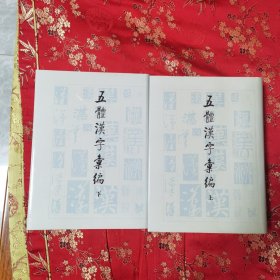 五體漢字彙編 下
五體漢字彙編 上